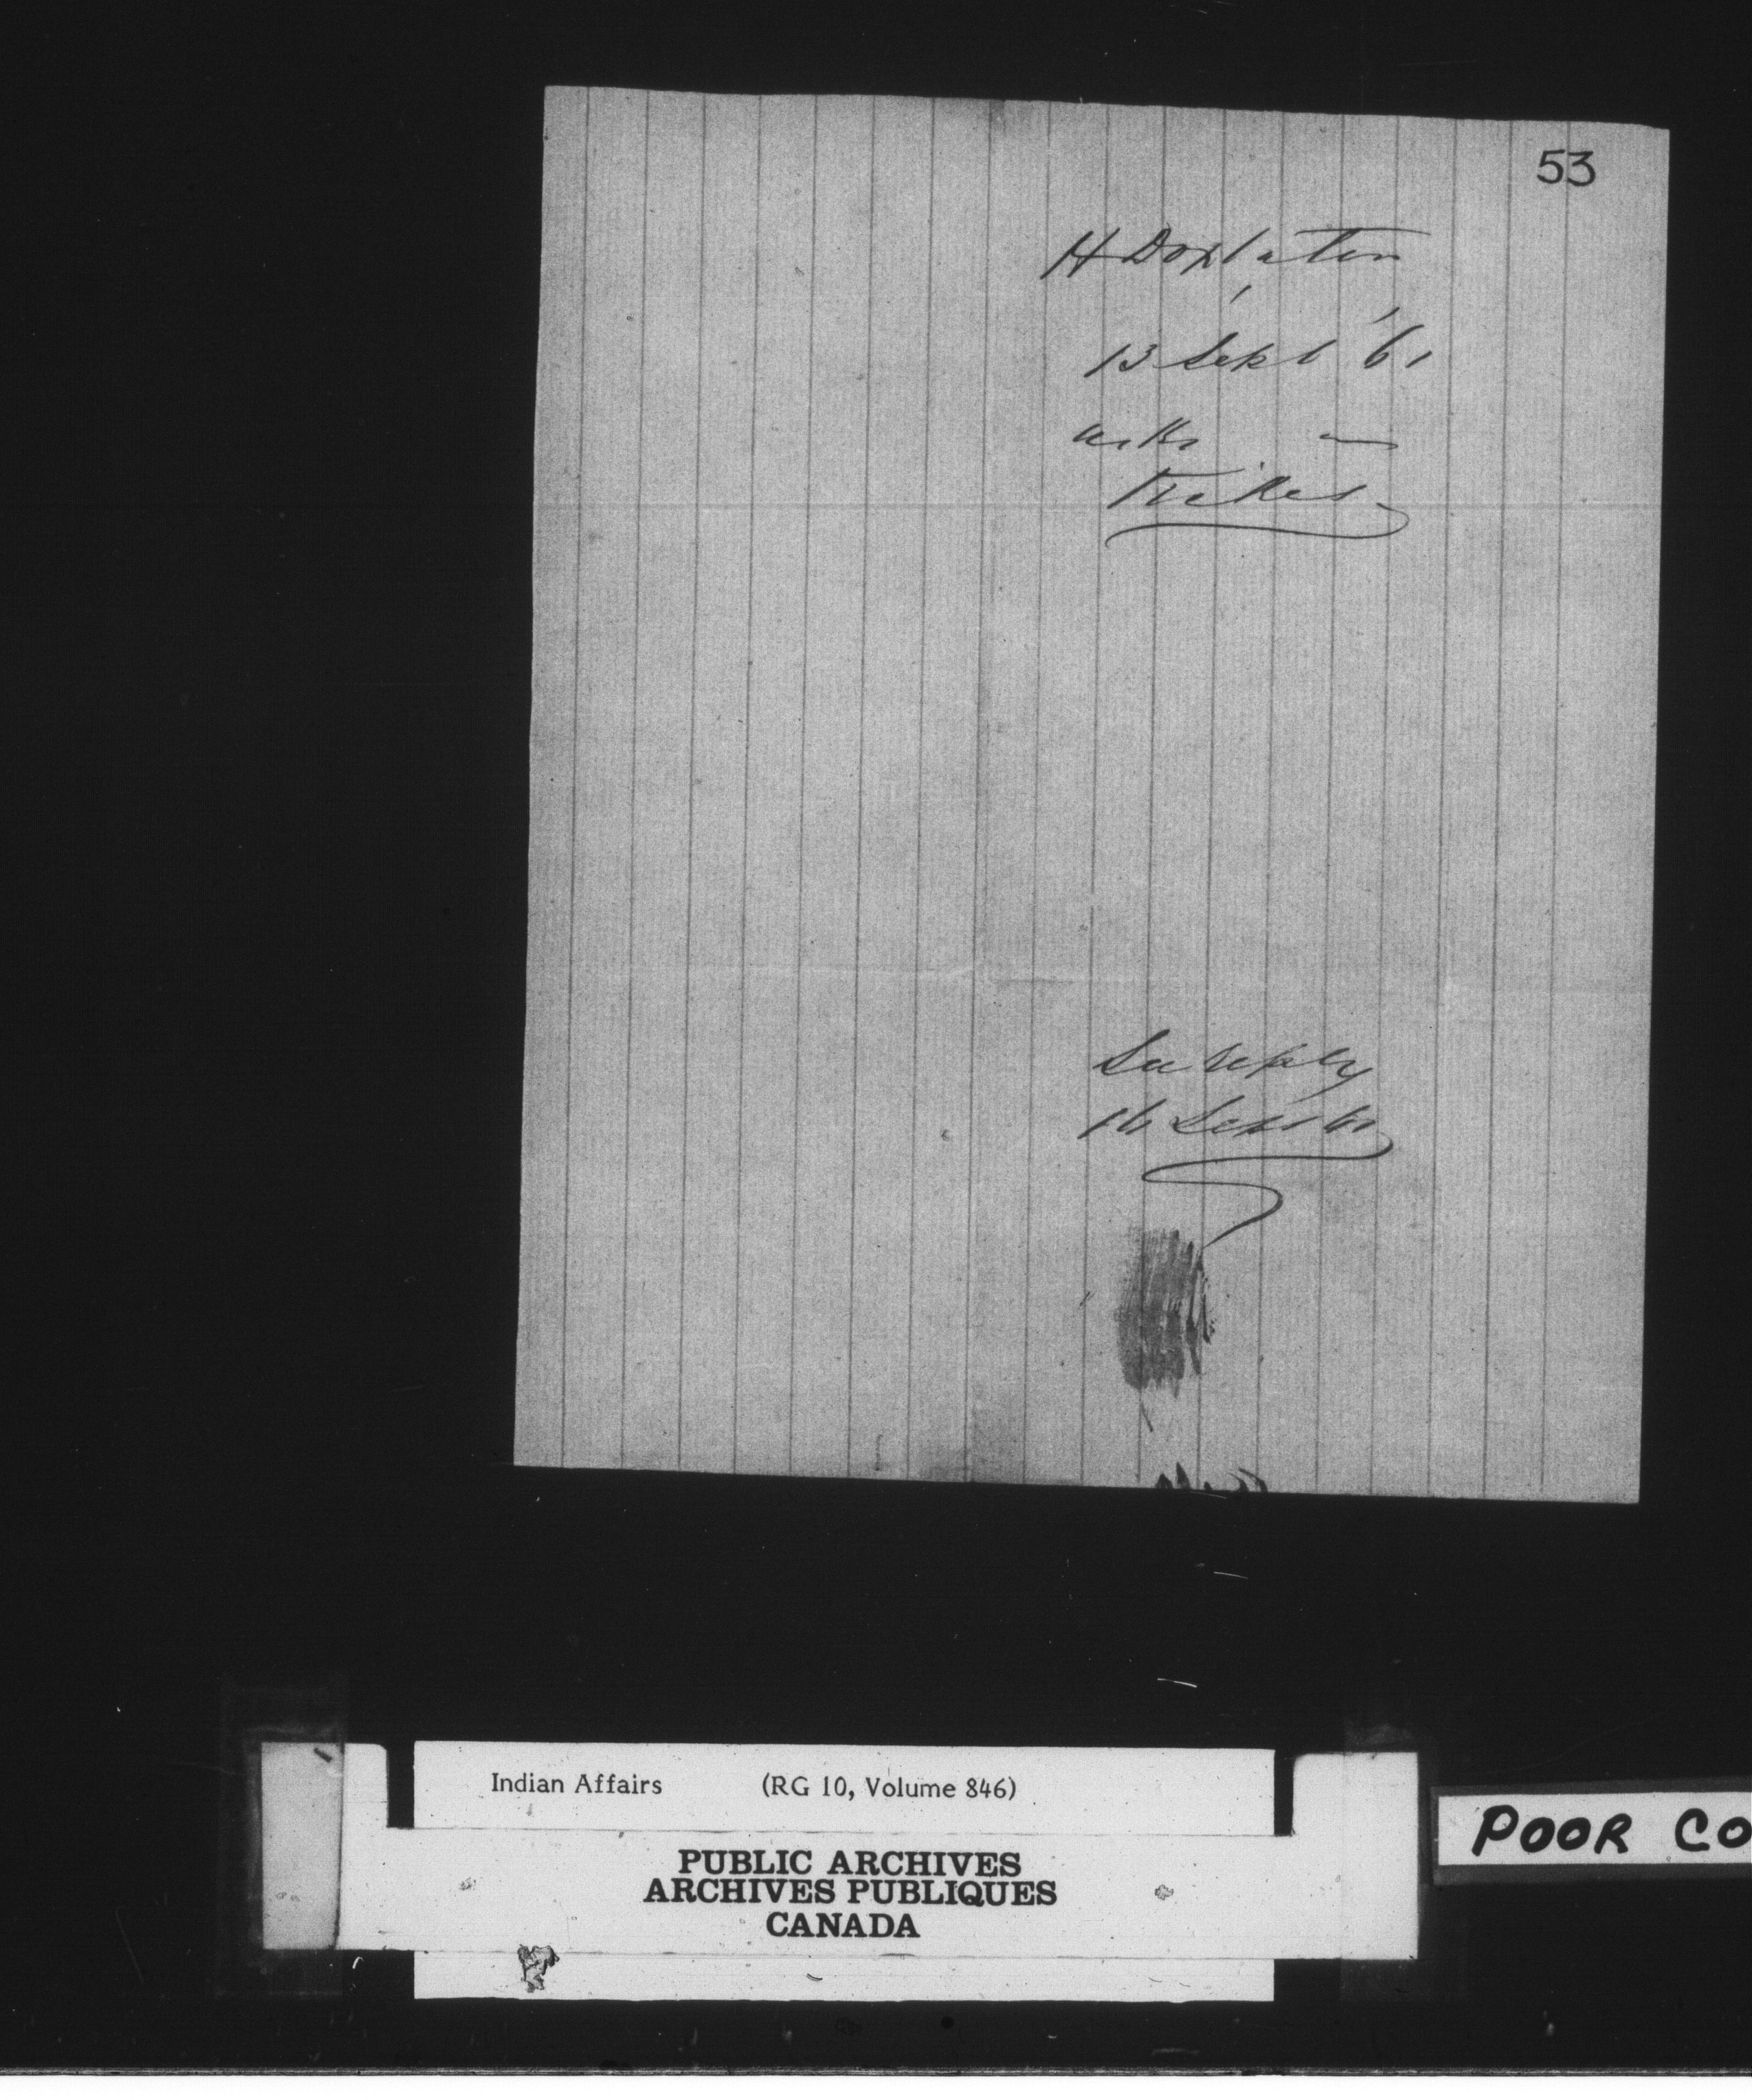 53
H Doxtator
13 Sept '61
asks
Ticket
See reply
16 Sept 61
Indian Affairs (RG 10, Volume 846)
PUBLIC ARCHIVES
ARCHIVES PUBLIQUES
CANADA
POOR CO